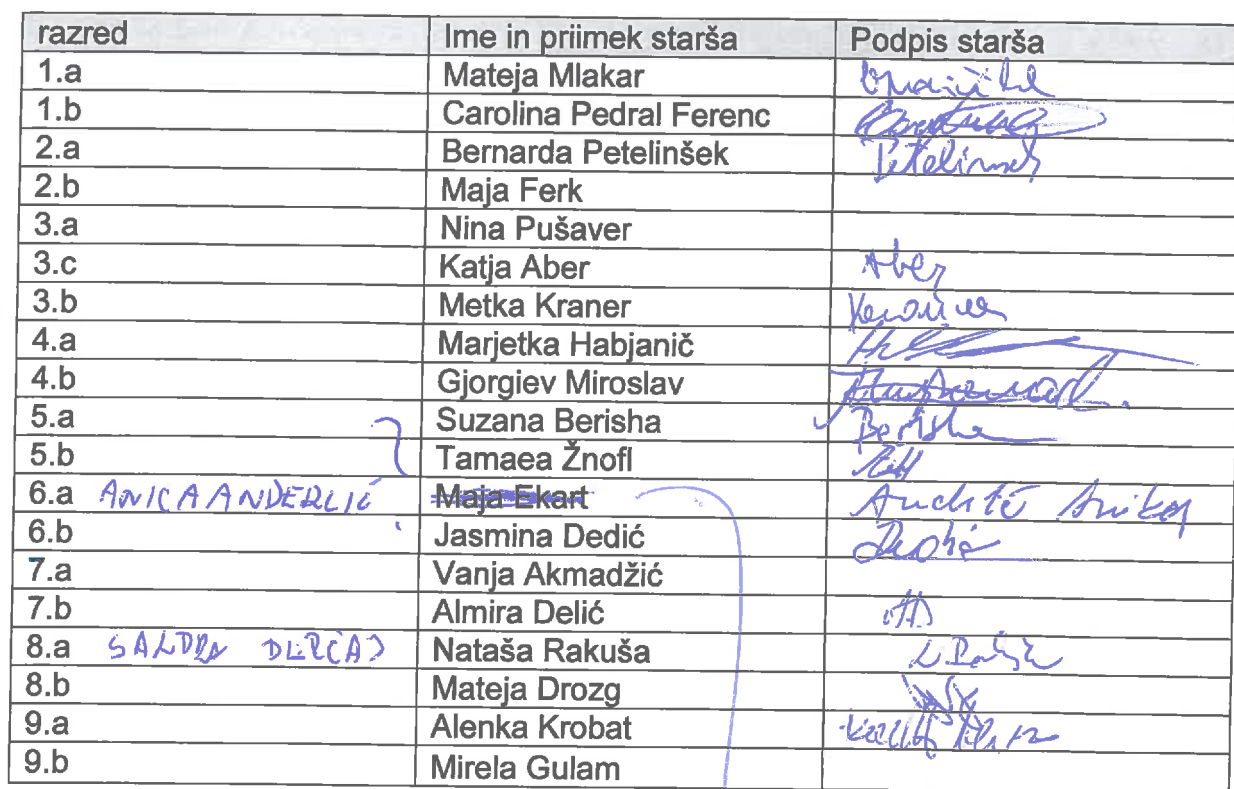 razred Ime in priimek starša Podpis starša
1.a Mateja Mlakar
1.b Carolina Pedral Ferenc
2.a Bernarda Petelinšek Petelinšek
2.b Maja Ferk
3.a Nina Pušaver
3.c Katja Aber Aber
3.b Metka Kraner
4.a Marjetka Habjanič
4.b Gjorgiev Miroslav
5.a Suzana Berisha Berisha
5.b Tamaea Žnofl
6.a ANICA ANDERLIČ Maja Ekart
6.b Jasmina Dedić
7.a Vanja Akmadžić
7.b Almira Delić
8.a Nataša Rakuša
8.b Mateja Drozg
9.a Alenka Krobat
9.b Mirela Gulam